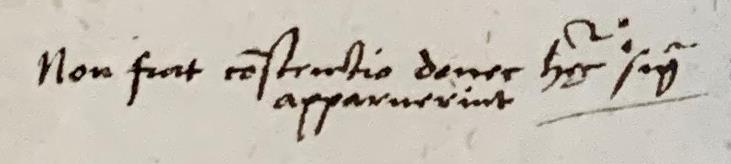 Non fiat cōstructio donec hęc sig̃
apparuerint